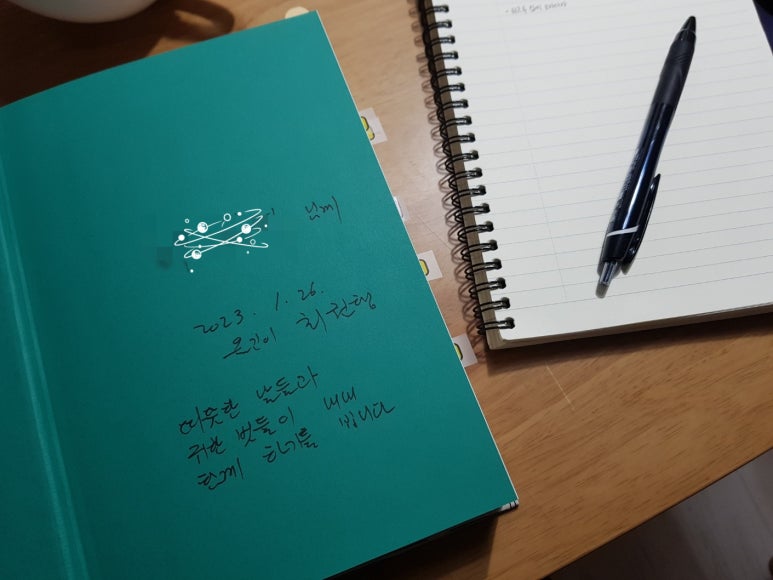 님께
2023. 1. 26.
옮긴이 최권행
따뜻한 날들과
귀한 벗들이 내내
함께 하기를 빕니다